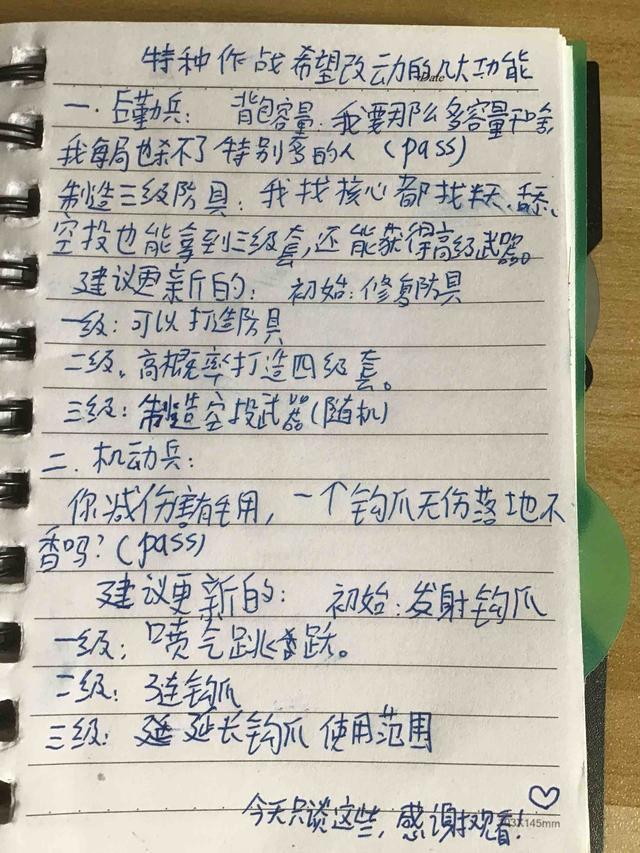 特种作战希望改动的几大功能
Date
一.后勤兵: 背包容量:我要那么多容量干啥
我每局也杀不了特别多的人 (pass)
制造三级防具:我找核心都找半天,舔
空投也能拿到三级套,还能获得高级武器。
建议更新的: 初始:修复防具
一级:可以打造防具
二级、高概率打造四级套。
三级:制造空投武器(随机)
二.机动兵:
你减伤害有毛用,一个钩爪无伤落地不
香吗?(pass)
建议更新的: 初始:发射钩爪
一级:喷气跳跃。
二级:2连钩爪
三级: 延长钩爪使用范围
今天只谈这些,感谢观看!
145mm